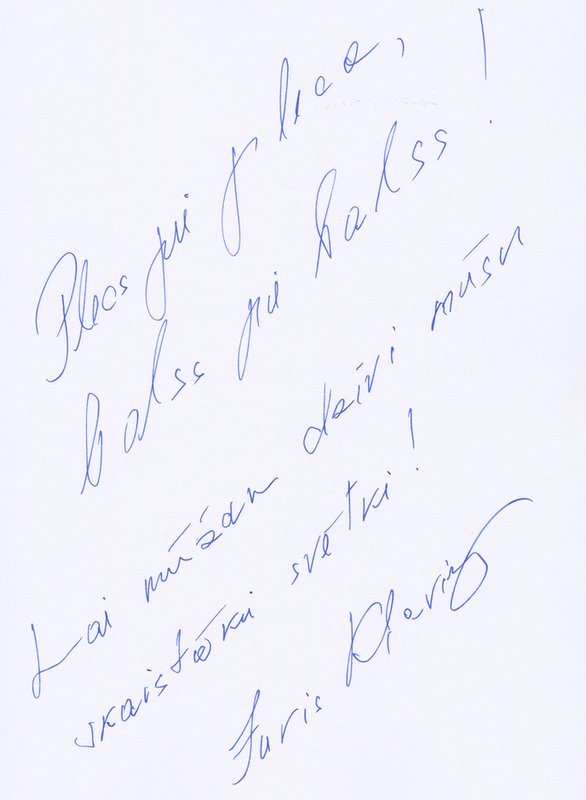 Plecs pie pleca,
balss pie balss!
Lai mūžam dzīvi mūsu
skaistākie svētki!
Juris Kļaviņš